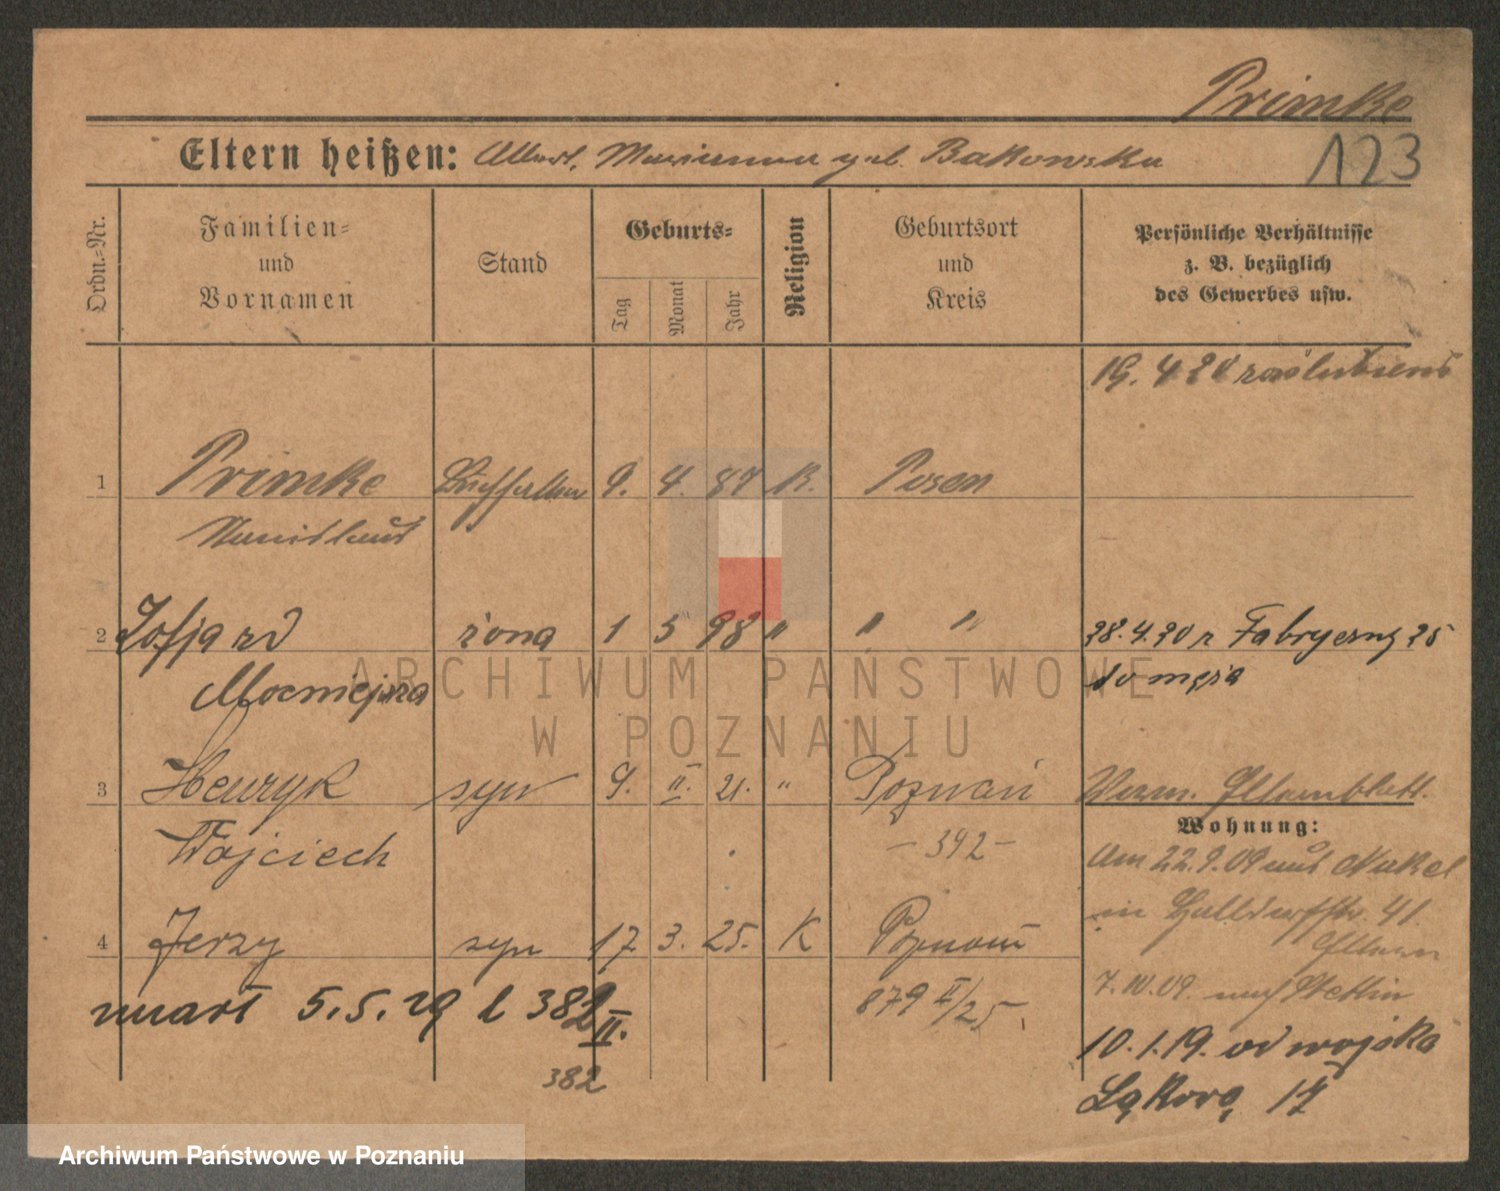 Primke
123
Eltern heißen: Albert, Marianna geb. Bakowska
Ordn.-Nr.
Familien- und Vornamen
Stand
Geburts-
Tag
Monat
Jahr
Religion
Geburtsort und Kreis
Persönliche Verhältnisse
z. B. bezüglich
des Gewerbes usw.
19. 4 20 zaślubieni
1 Primke Buchhalter 9. 4. 87 K. Posen
Stanislaus
2 Zofja zd żona 1 5 98 " " " 28.4.20 z Fabrycznej 25
do męża
3 Henryk syn 9. II. 21. " Poznań Verm. Elternblatt.
Wohnung:
Wojciech - 392 - Am 22.9.09 aus Nakel
in 41.
Eltern
4 Jerzy syn 17 3. 25. K Poznań
7.10.09. nach Stettin
zmarł 5.5.29 l 382 II. 879 II/25.
10.1.19. od wojska
382
Łąkowa 17
ARCHIWUM PAŃSTWOWE
W POZNANIU
Archiwum Państwowe w Poznaniu